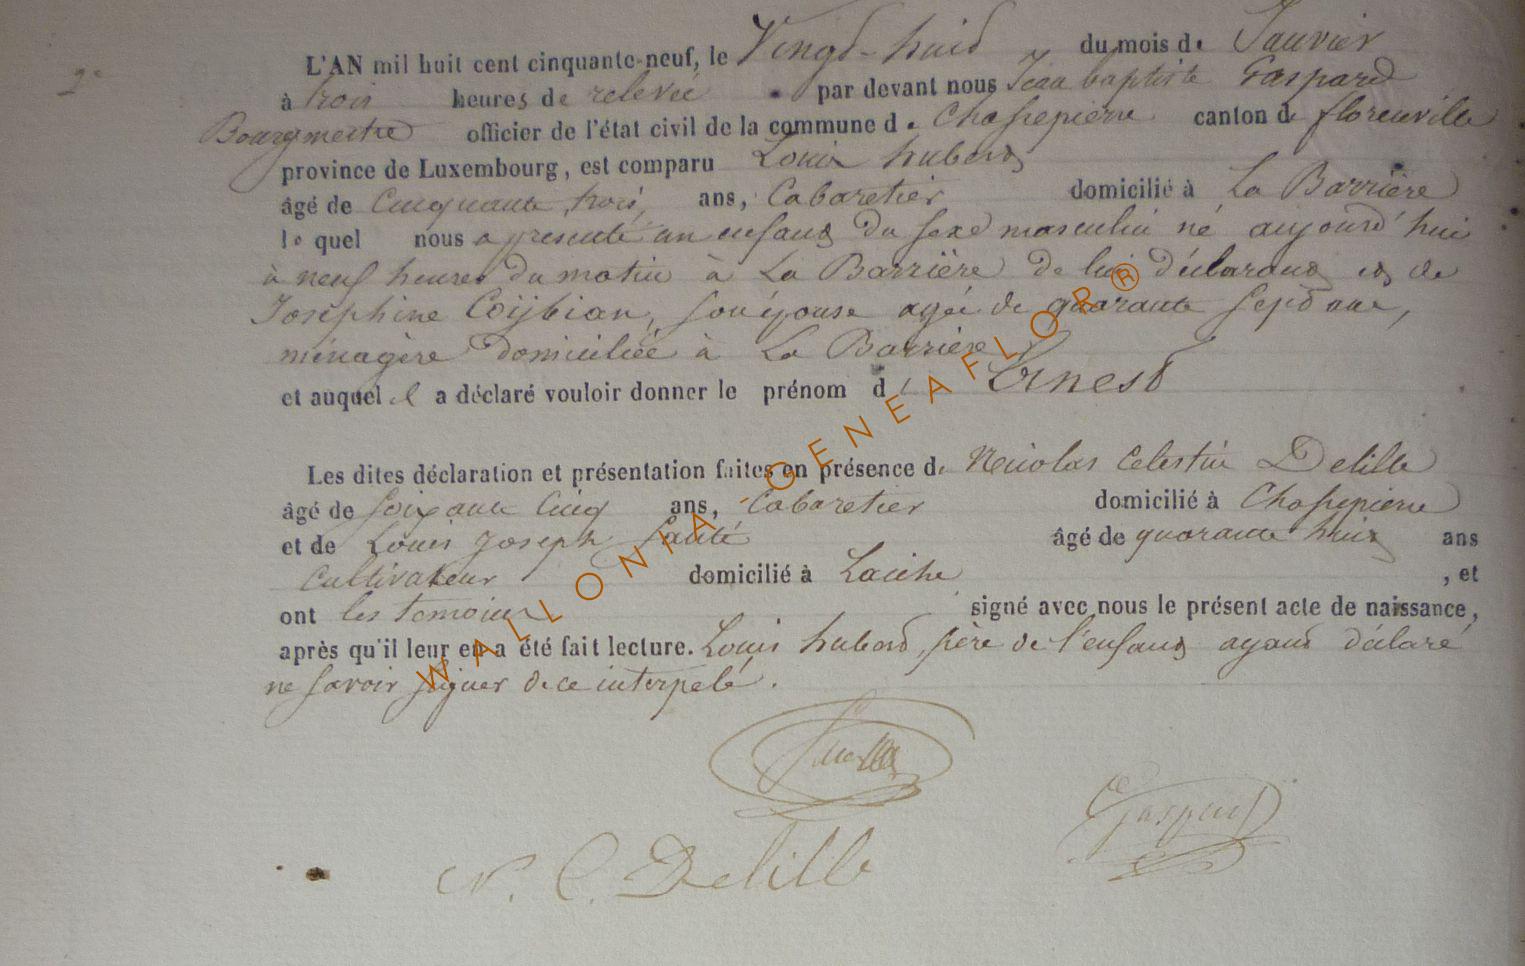 2e
L'AN mil huit cent cinquante-neuf, le Vingt-huit du mois de Janvier
à trois heures de relevée par devant nous Jean baptiste Gaspard
Bourgmestre officier de l'état civil de la commune de Chassepierre canton de florenville
province de Luxembourg, est comparu Louis hubert
âgé de Cinquante trois, ans, Cabaretier domicilié à La Barrière
le quel nous a presenté un enfant du sexe masculin né aujourd'hui
à neuf heures du matin à La Barrière de lui déclarant et de
Josephine Coijbian, son épouse agée de quarante sept ans,
ménagère domiciliée à La Barrière
et auquel il a déclaré vouloir donner le prénom d Ernest
Les dites déclaration et présentation faites en présence de Nicolas Celestin Delille
âgé de soixante Cinq ans, Cabaretier domicilié à Chassepierre
et de Louis Joseph âgé de quarante huit ans
Cultivateur domicilié à Laiche , et
ont les temoins signé avec nous le présent acte de naissance,
après qu'il leur en a été fait lecture. Louis hubert, père de l'enfant ayant déclaré
ne savoir signer de ce interpelé.
Gaspard
N. C. Delille
WALLONIA - GENEAFLOR®